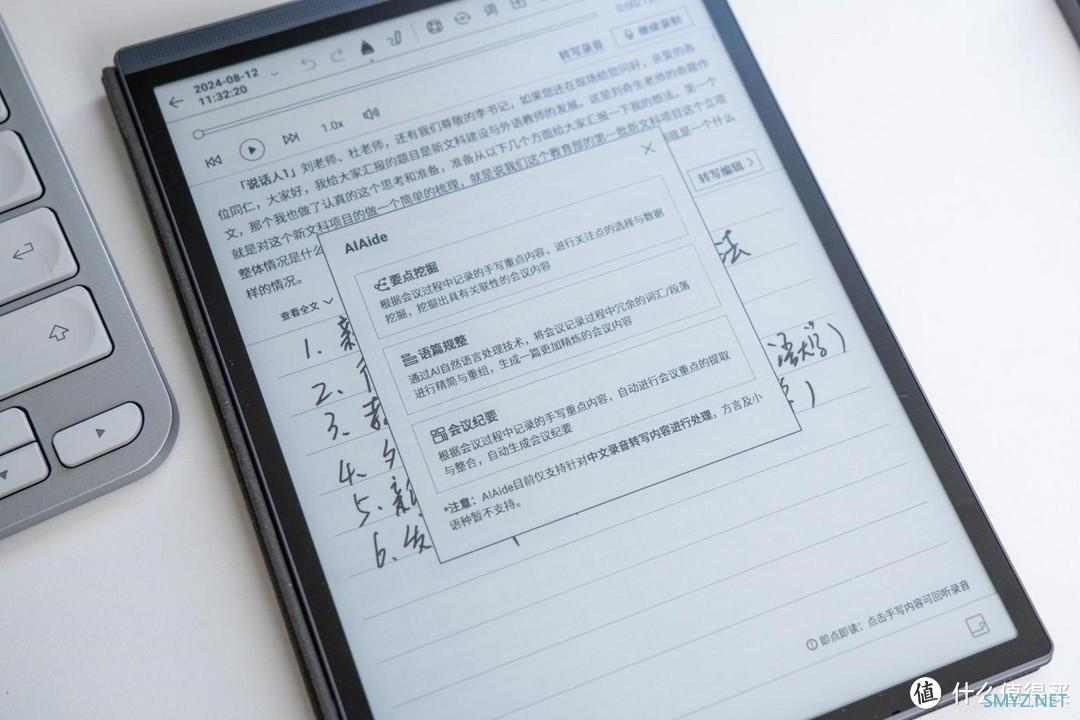 2024-08-12
11:32:20
词
转写录音
继续录制
1.0x
「说话人1」刘老师、杜老师，还有我们尊敬的李书记，如果您还在现场给您问好，亲爱的各
位同仁，大家好，我给大家汇报的题目是新文科建设与外语教师的发展。这是刘奇生老师的命题作
文，那个我也做了认真的这个思考和准备，准备从以下几个方面给大家汇报一下我的想法。第一个
就是对这个新文科项目的做一个简单的梳理，就是说我们这个教育部的第一批新文科项目这个立项
整体情况是什么
到底是一个什么
样的情况。
转写编辑
查看全文
AIAide
要点挖掘
根据会议过程中记录的手写重点内容，进行关注点的选择与数据
挖掘，挖掘出具有关联性的会议内容
语篇规整
通过AI自然语言处理技术，将会议记录过程中冗余的词汇/段落
进行精简与重组，生成一篇更加精炼的会议内容
会议纪要
根据会议过程中记录的手写重点内容，自动进行会议重点的提取
与整合，自动生成会议纪要
*注意：AIAide目前仅支持针对中文录音转写内容进行处理，方言及小
语种暂不支持。
1. 新
法
2.
3.
4.
5. 新
6. 发
即点即读：点击手写内容可回听录音
值 什么值得买
SMYZ.NET